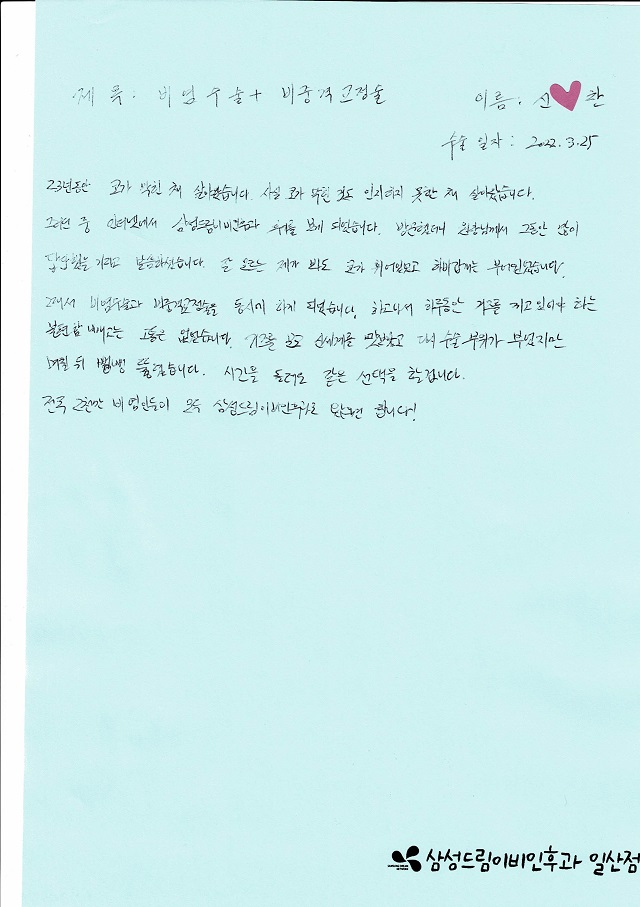 제 목 : 비염수술 + 비중격교정술
이름 : 신 찬
수술 일자 : 2022. 3. 25
23년동안 코가 막힌 채 살아왔습니다. 사실 코가 막힌 것도 인지하지 못한 채 살아왔습니다.
그러던 중 인터넷에서 삼성드림이비인후과 후기를 보게 되었습니다. 방문했더니 원장님께서 그동안 많이
답답했을 거라고 말씀하셨습니다. 잘 모르는 제가 봐도 코가 휘어있었고 하비갑개는 부어있었습니다.
그래서 비염수술과 비중격교정술을 동시에 하게 되었습니다. 하고나서 하루동안 거즈를 끼고 있어야 하는
불편함 빼고는 고통은 없었습니다. 거즈를 뽑고 신세계를 맛보았고 다시 수술 부위가 부었지만
며칠 뒤 뻥뻥 뚫렸습니다. 시간을 돌려도 같은 선택을 할겁니다.
전국 2천만 비염인들이 모두 삼성드림이비인후과로 왔으면 합니다!
삼성드림이비인후과 일산점